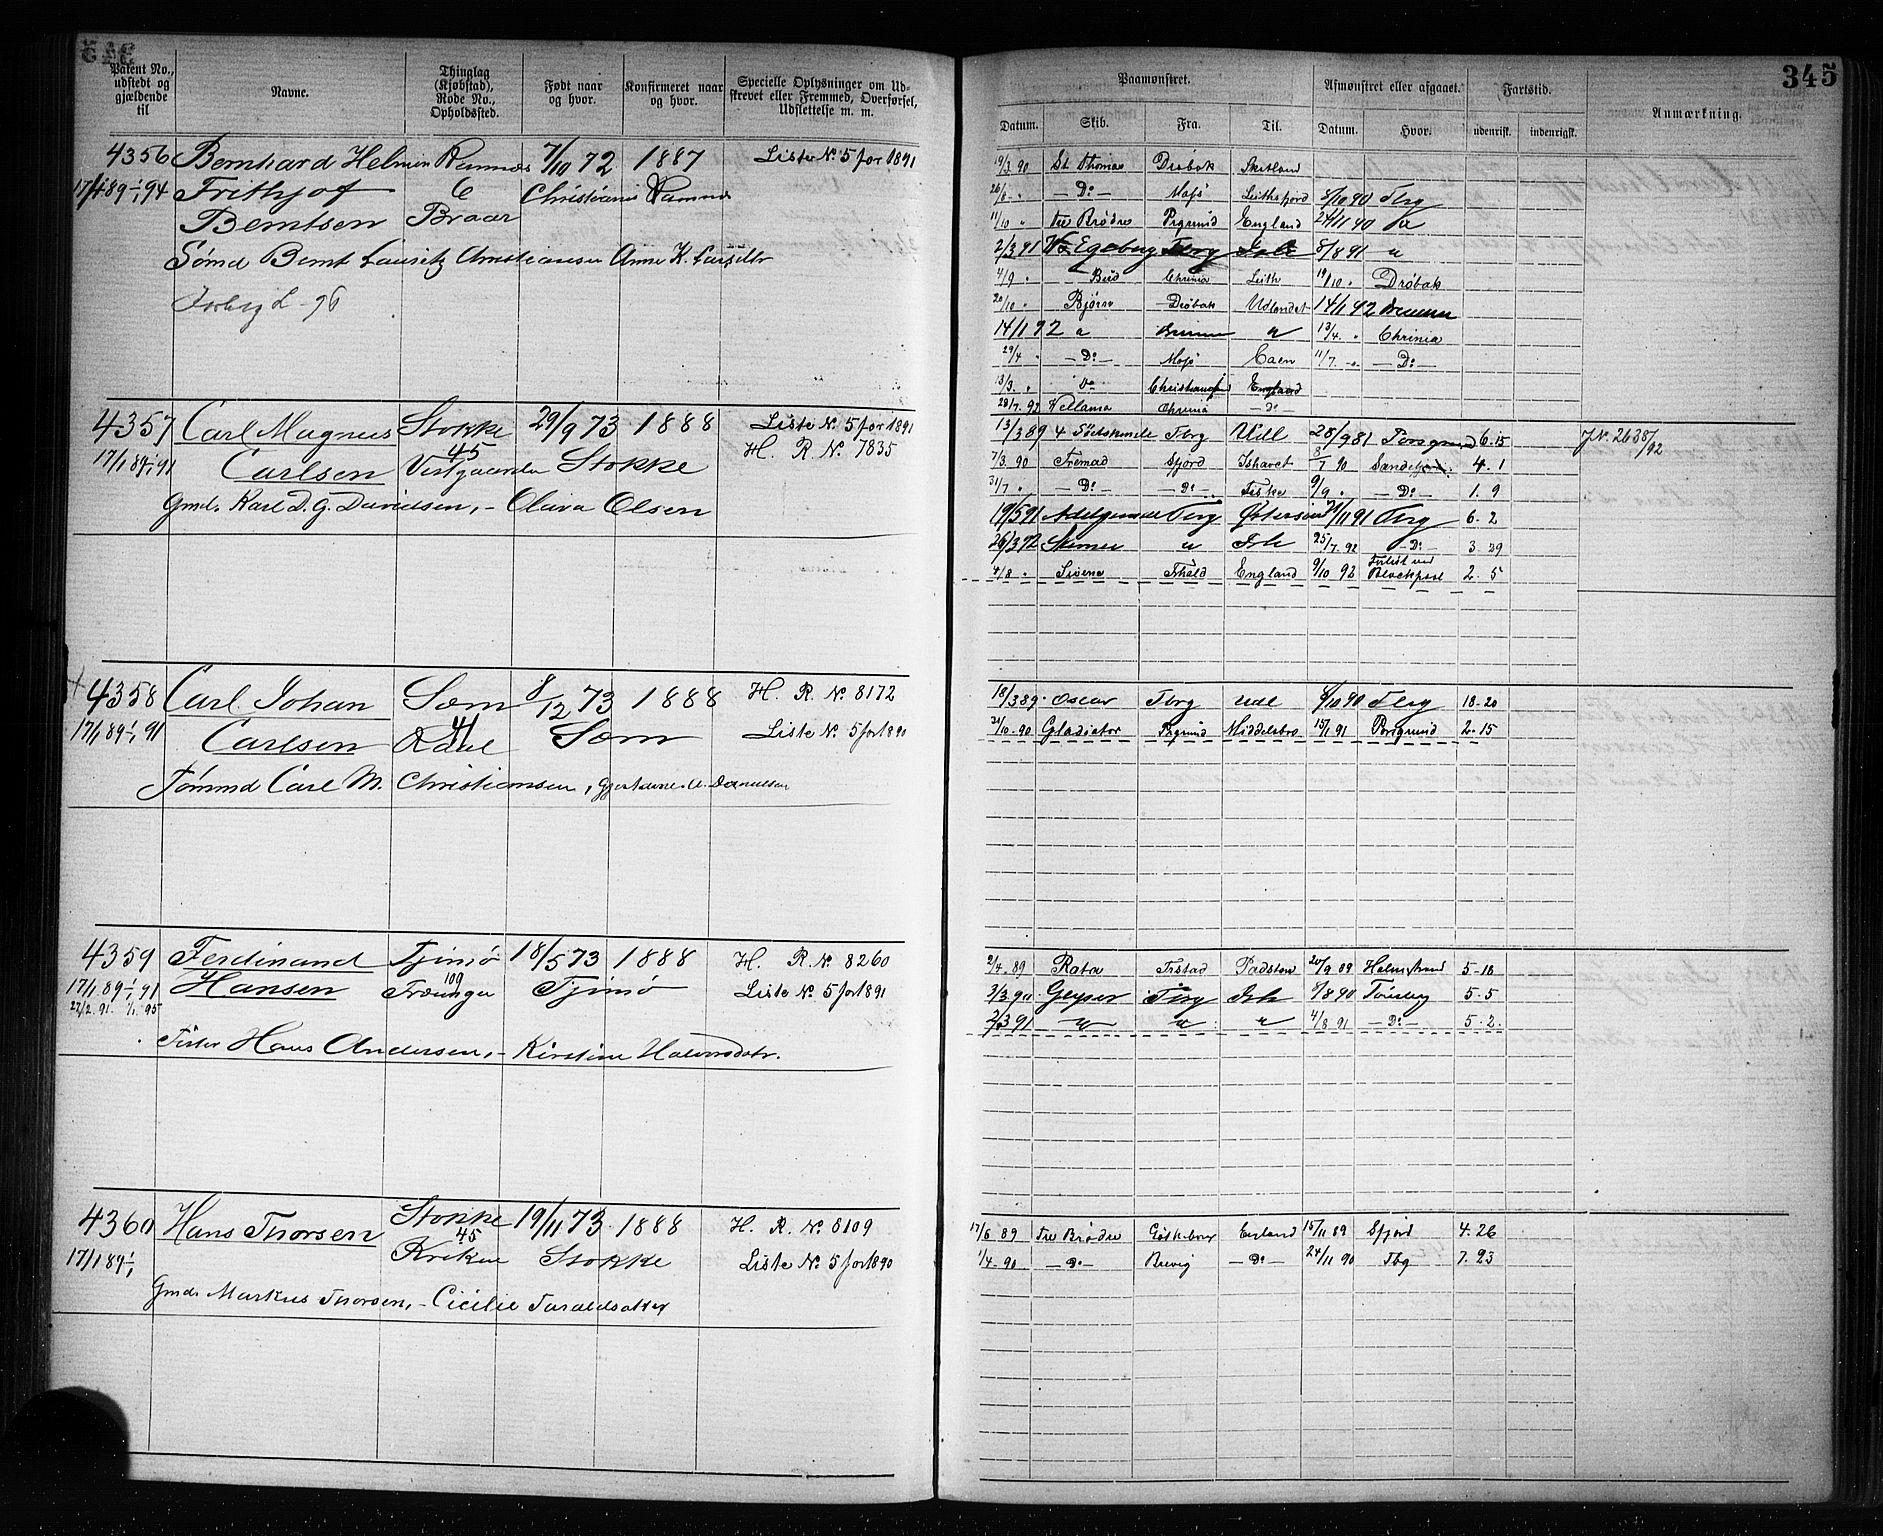 345
Patent No., udstedt og gjældende til
Navne.
Thinglag (Kjøbstad), Rode No., Opholdssted.
Født naar og hvor.
Konfirmeret naar og hvor.
Specielle Oplysninger om Udskrevet eller Fremmed, Overførsel, Udslettelse m. m.
Paamønstret.
Afmønstret eller afgaaet.
Fartstid.
Anmærkning.
Datum. Skib. Fra. Til. Datum. Hvor. udenrigsk. indenrigsk.
4356 Bernhard Helmin Ramnæs 7/10 72 1887 Liste No. 5 for 1891
Frithjof 6 Christiania Ramnæs
Berntsen Braar
Sømd Bernt Lauritz Christiansen Anne K. Larsdtr
19/3 90 St Thomas Drøbak Skotland
— Do — Moss 8/10 90 Tbrg
11/10 " tre Brødre Prgrund England 24/11 90
2/3 91 Egeberg Tbrg Ish 8/8 91 "
4/9 " Chrinia Leith 19/10 " Drøbak
20/10 " Bjørn Drøbak Udlandet 14/1 92
14/1 92 " 13/4 " Chrinia
29/4 " — Do — Moss Caen 11/7 " — Do —
13/3 " Do Christiansund England
28/7 92 Vellama Chrinia — Do —
4357 Carl Magnus Stokke 29/9 73 1888 Liste No. 5 for 1891
17/1 89 1/1 91 Carlsen 45 Stokke H. R. No. 7835
Vestgaarden
Gmd. Karl D. G. Davidsen, - Oliva Olsen
13/3 89 4 Södskende Tbrg Udl 28/9 81 Porsgrund 6. 15 J.No. 2638/92
7/3 90 Fremad Sfjord Ishavet 8/7 90 Sandefjord 4. 1
31/7 " — Do — — Do — Fiske 9/9 " — Do — 1. 9
19/5 91 Adelgunde Tbrg Østersøen 21/11 91 Tbrg 6. 2
26/3 92 " Ish 25/7 92 — Do — 3. 29
4/8 " Sirene Fhald England 9/10 92 Forlist ved Blackpool 2. 5
4358 Carl Johan Sæm 8/12 73 1888 H. R. No. 8172
17/1 89 1/1 91 Carlsen 41 Sæm Liste No. 5 for 1890
Tømmd Carl M. Christiansen,
18/3 89 Oscar Tbrg Udl 8/10 90 Tbrg 18. 20
21/10 90 Gladiator Prgrund Middelsbro 15/1 91 Porsgrund 2. 15
4359 Ferdinand Tjømø 18/5 73 1888 H. R. No. 8260
17/1 89 1/1 91 Hansen 109 Tjømø Liste No. 5 for 1891
27/2 91 1/1 95
Fisker Hans Andersen, - Kirstine Halvorsdatr.
2/4 89 Rota Frstad Padstow 20/9 89 Holmestrand 5. 18
3/3 90 Geyser Tbrg Ish 8/8 90 Tønsberg 5. 5
2/3 91 " " " 4/8 91 — Do — 5. 2
4360 Hans Thorsen Stokke 19/11 73 1888 H. R. No. 8109
17/1 89 1/1 45 Stokke Liste No. 5 for 1890
Kroken
Gmd. Markus Thorsen, - Cicilie Taraldsatter
17/6 89 Tre Brødre Gøteborg England 15/11 89 Sfjord 4. 26
1/4 90 — Do — Brevig — Do — 24/11 90 Tbg 7. 23